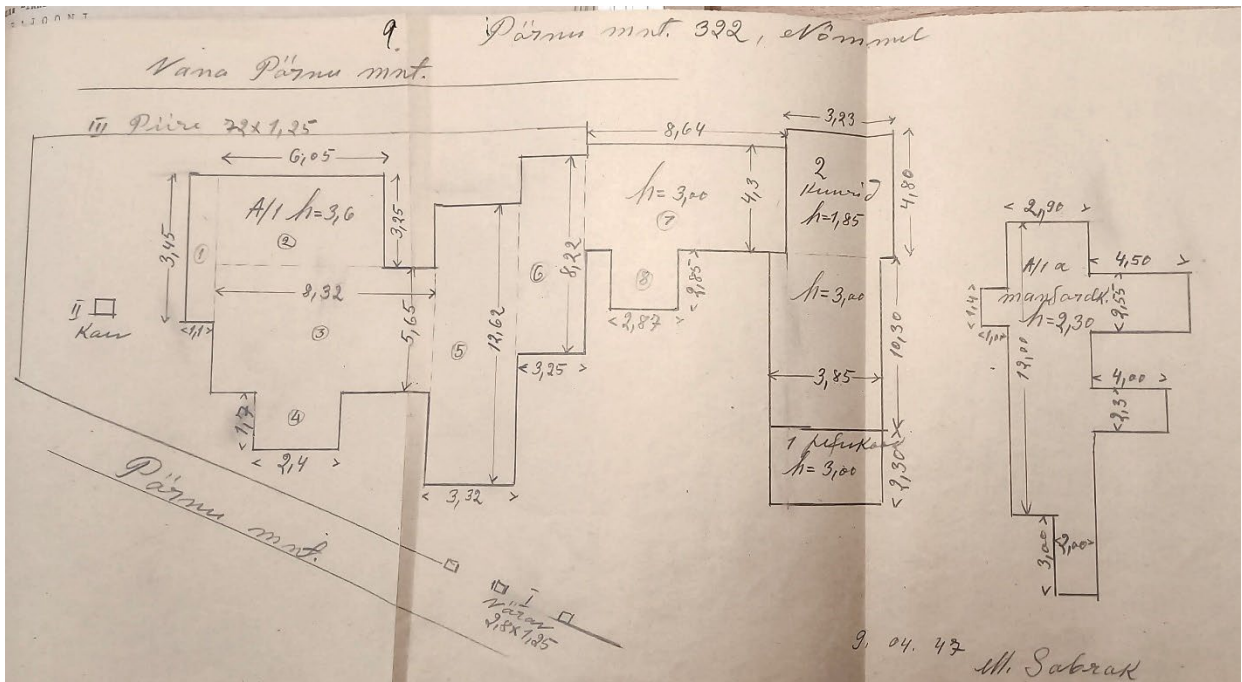 9. Pärnu mnt. 322, Nõmmel
Vana Pärnu mnt.
III Piire 72x1,25
6,05
8,64
3,23
A/1 h=3,6
②
3,25
3,45
①
8,32
③
5,65
II
Kaev
1,1
④
1,7
2,4
⑤
12,62
3,32
⑥
8,22
3,25
h=3,00
⑦
4,3
⑧
2,85
2,87
2
Kuurid
h=1,85
4,80
h=3,00
10,30
3,85
h=3,00
2,30
2,90
A/1 a
mansardk.
h=2,30
4,50
2,55
1,4
1,07
12,00
4,00
2,3
3,00
2,00
Pärnu mnt.
I
Värav
2,8x1,25
9. 04. 47
M. Sabrak